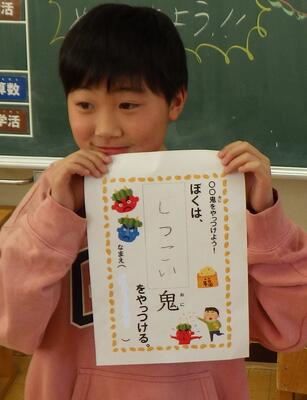 活
算数
学活
よう!!
〇〇鬼をやっつけよう!
ぼくは、
しつこい鬼
おに
をやっつける。
なまえ( )
福